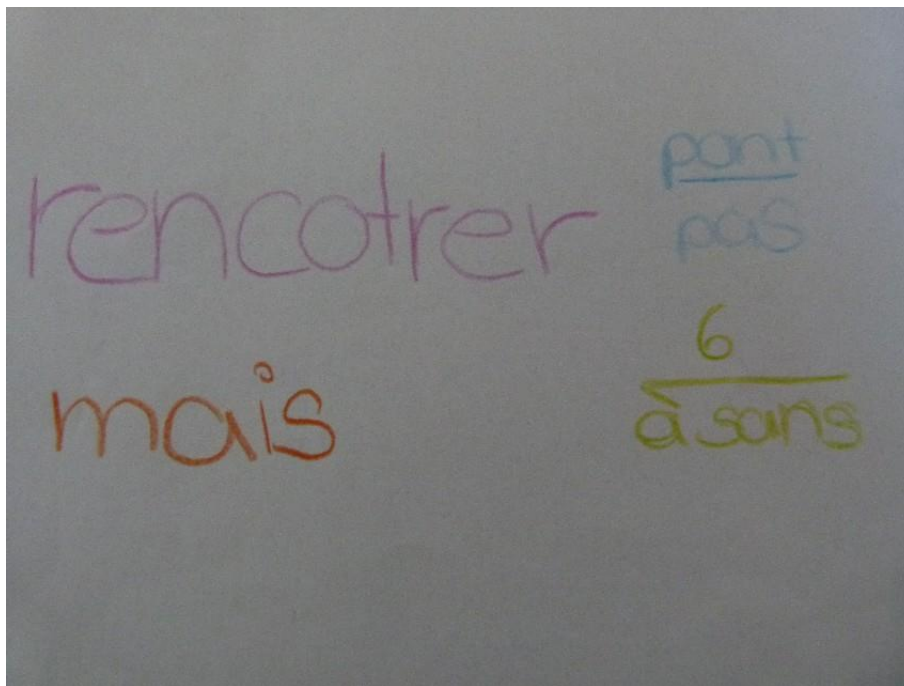 rencotrer
pont
pas
mais
6
à sans